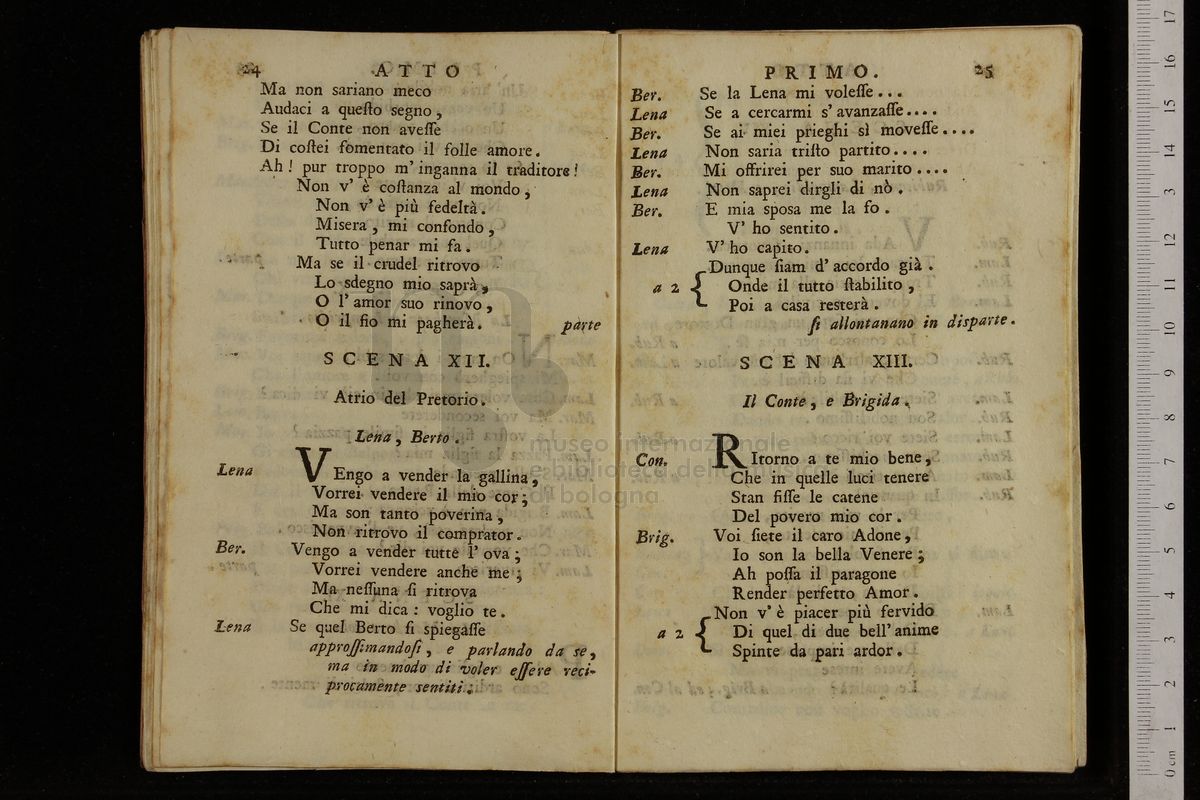 24 ATTO
Ma non sariano meco
Audaci a queſto segno,
Se il Conte non aveſſe
Di coſtei fomentato il folle amore.
Ah! pur troppo m'inganna il traditore!
Non v'è coſtanza al mondo,
Non v'è più fedeltà.
Misera, mi confondo,
Tutto penar mi fa.
Ma se il crudel ritrovo
Lo sdegno mio saprà,
O l'amor suo rinovo,
O il fio mi pagherà. parte
SCENA XII.
Atrio del Pretorio.
Lena, Berto.
Lena VEngo a vender la gallina,
Vorrei vendere il mio cor;
Ma son tanto poverina,
Non ritrovo il comprator.
Ber. Vengo a vender tutte l'ova;
Vorrei vendere anche me;
Ma neſſuna ſi ritrova
Che mi dica: voglio te.
Lena Se quel Berto ſi spiegaſſe
approſſimandoſi, e parlando da se,
ma in modo di voler eſſere reci-
procamente sentiti.
PRIMO. 25
Ber. Se la Lena mi voleſſe...
Lena Se a cercarmi s'avanzaſſe....
Ber. Se ai miei prieghi sì moveſſe....
Lena Non saria triſto partito....
Ber. Mi offrirei per suo marito....
Lena Non saprei dirgli di nò.
Ber. E mia sposa me la fo.
V'ho sentito.
Lena V'ho capito.
a 2 { Dunque ſiam d'accordo già.
Onde il tutto ſtabilito,
Poi a casa reſterà.
ſi allontanano in disparte.
SCENA XIII.
Il Conte, e Brigida.
Con. RItorno a te mio bene,
Che in quelle luci tenere
Stan fiſſe le catene
Del povero mio cor.
Brig. Voi ſiete il caro Adone,
Io son la bella Venere;
Ah poſſa il paragone
Render perfetto Amor.
a 2 { Non v'è piacer più fervido
Di quel di due bell'anime
Spinte da pari ardor.
museo internazionale
e biblioteca della musica
di bologna